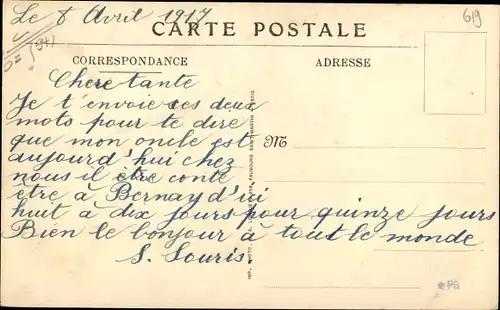 Le 8 Avril 1917
619
CARTE POSTALE
CORRESPONDANCE
ADRESSE
Chere tante
Je t'envoie ces deux
mots pour te dire
que mon oncle est
M
aujourd'hui chez
nous il être conte
être à Bernay d'ici
huit à dix jours pour quinze jours
Bien le bonjour à tout le monde
S. Souris
PB